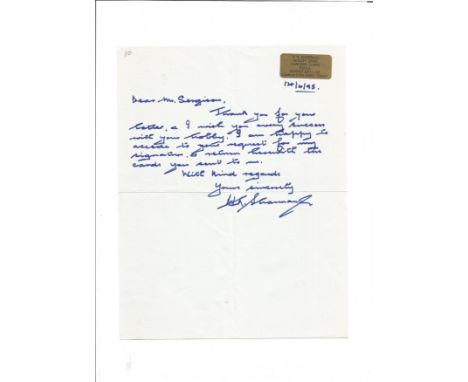 Dear Mr. Sergison,
Thank you for your
letter, & I wish you every success
with your hobby. I am happy to
accede to your request for my
signature, & return herewith the
cards you sent to me.
With kind regards
Yours sincerely